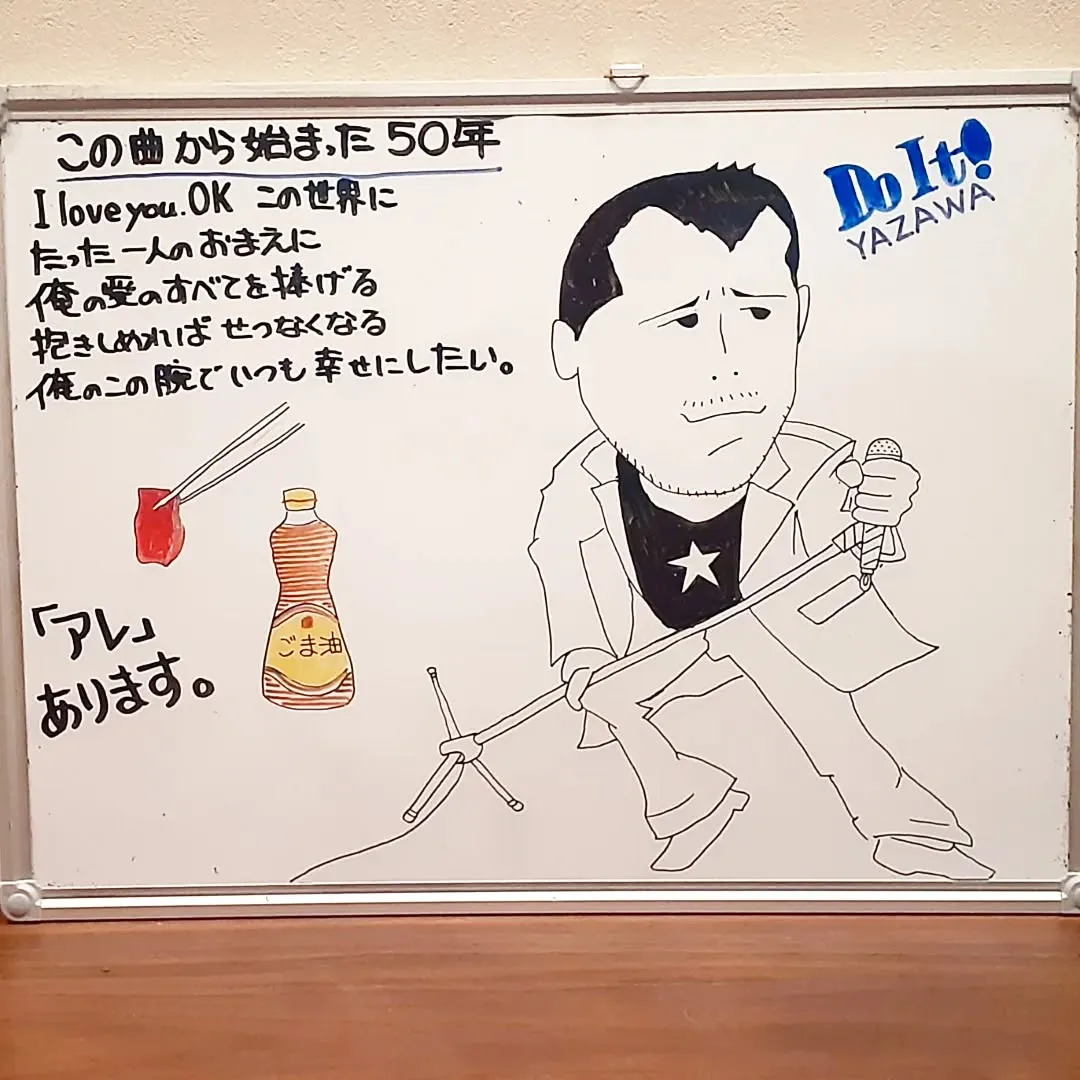 この曲から始まった50年
I love you.OK この世界に
たった一人のおまえに
俺の愛のすべてを捧げる
抱きしめればせつなくなる
俺のこの腕でいつも幸せにしたい。
Do It!
YAZAWA
ごま油
「アレ」
あります。